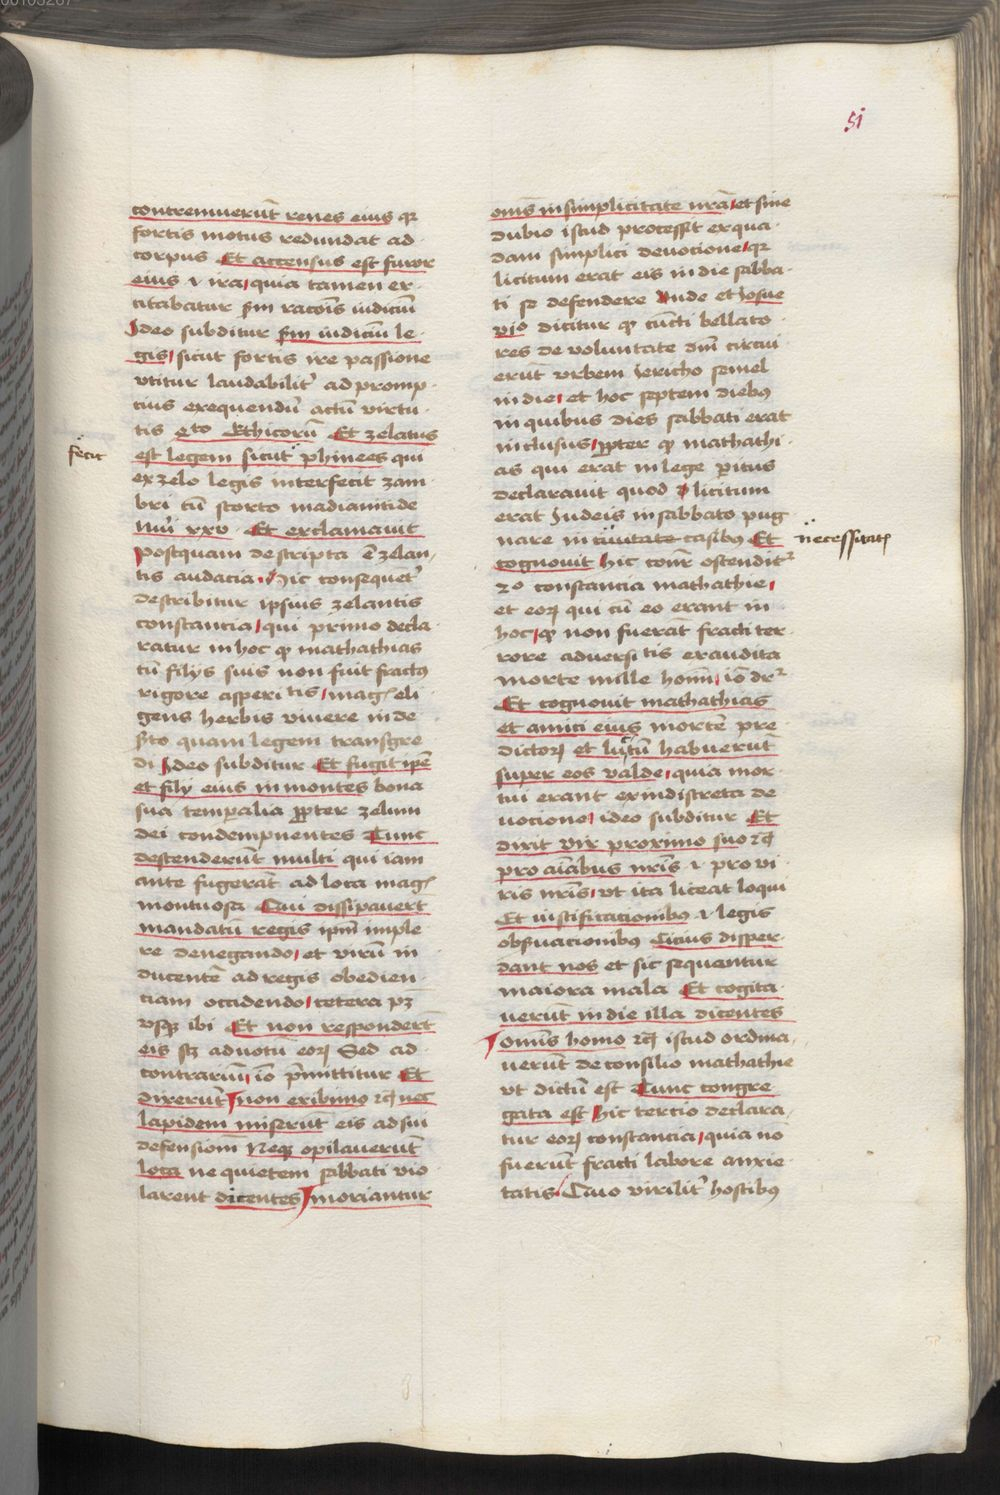 51
contremuerūt renes eius qꝛ
fortis motus redundat ad
corpus Et accensus est furor
eius ⁊ ira quia tamen ex
citabatur scďm racoīs iudiciū
Ideo subditur scďm iudiciū le
gis sicut fortis ire passione
vtitur laudabilit' ad promp
cius exequendū actū virtu
tis 4to Ethicorū Et zelatus
est legem sicut phinees qui
fecit
ex zelo legis interfecit zam
bri cū scorto madianitide
Nūi xxv Et exclamauit
postquam descripta ē zelan
tis audacia hic consequent'
describitur ipsius zelantis
constancia qui primo decla
ratur in hoc ꝙ mathathias
cū filijs suis non fuit fractꝯ
rigore asperitatis mag eli
gens herbis viuere in de
serto quam legem transgre
di Ideo subditur Et fugit ipē
et filij eius in montes bona
sua temporalia ꝓpter zelum
dei condempnentes Tunc
descenderūt multi qui iam
ante fugerāt ad loca mag
montuosa Qui dissipauert
mandatū regis ipm̄ imple
re denegando et virū in
ducentē ad regis obedien
ciam occidendo cetera pꝫ
vsqꝫ ibi Et non responderūt
eis scꝫ ad votū eoꝝ Sed ad
contrariū iō p̄mittitur Et
dixerūt non exibimꝯ ꝛcͣ nec
lapidem miserūt eis ad sui
defensionē Neqꝫ opilauerūt
loca ne quietem sabbati vio
larent dicentes moriamur
om̄s in simplicitate nrā et sine
dubio istud processit ex qua
dam simplici deuocione qꝛ
licitum erat eis in die sabba
ti se defendere Unde et Josue
vjo dicitur ꝙ cūcti bellato
res de voluntate dnī circui
erūt vrbem Jericho semel
in die et hoc septem diebꝯ
in quibus dies sabbati erat
inclusus ꝓpter ꝙ mathathi
as qui erat in lege peritus
declarauit quod licitum
erat Judeis in sabbato pug
nare in ciuitate casibꝯ Et
necessitatꝭ
cognouit hic conr̄ ostendit'
2o constancia mathathie
et eoꝝ qui cū eo erant in
hoc ꝙ non fuerāt fracti ter
rore aduersitatis exaudita
morte mille hom̄ iō dr
Et cognouit mathathias
et amici eius mortē pre
dictoꝝ et luctū habuerūt
super eos valde quia mor
tui erant ex indiscreta de
uocione ideo subditur Et
dixit vir proximo suo ꝛcͣ
pro aīabus nrīs ⁊ pro vi
ris nrīs vt ita liceat loqui
Et iustificacionibꝯ ⁊ legis
obseruacionibꝯ Cicius disper
dant nos et sic sequentur
maiora mala Et cogita
uerūt in die illa dicentes
omīs homo ꝛcͣ istud ordina
uerūt de consilio mathathie
vt dictū est Tunc congre
gata est hic tercio declara
tur eoꝝ constancia quia nō
fuerūt fracti labore anxie
tatis Quo virilit' hostibꝯ